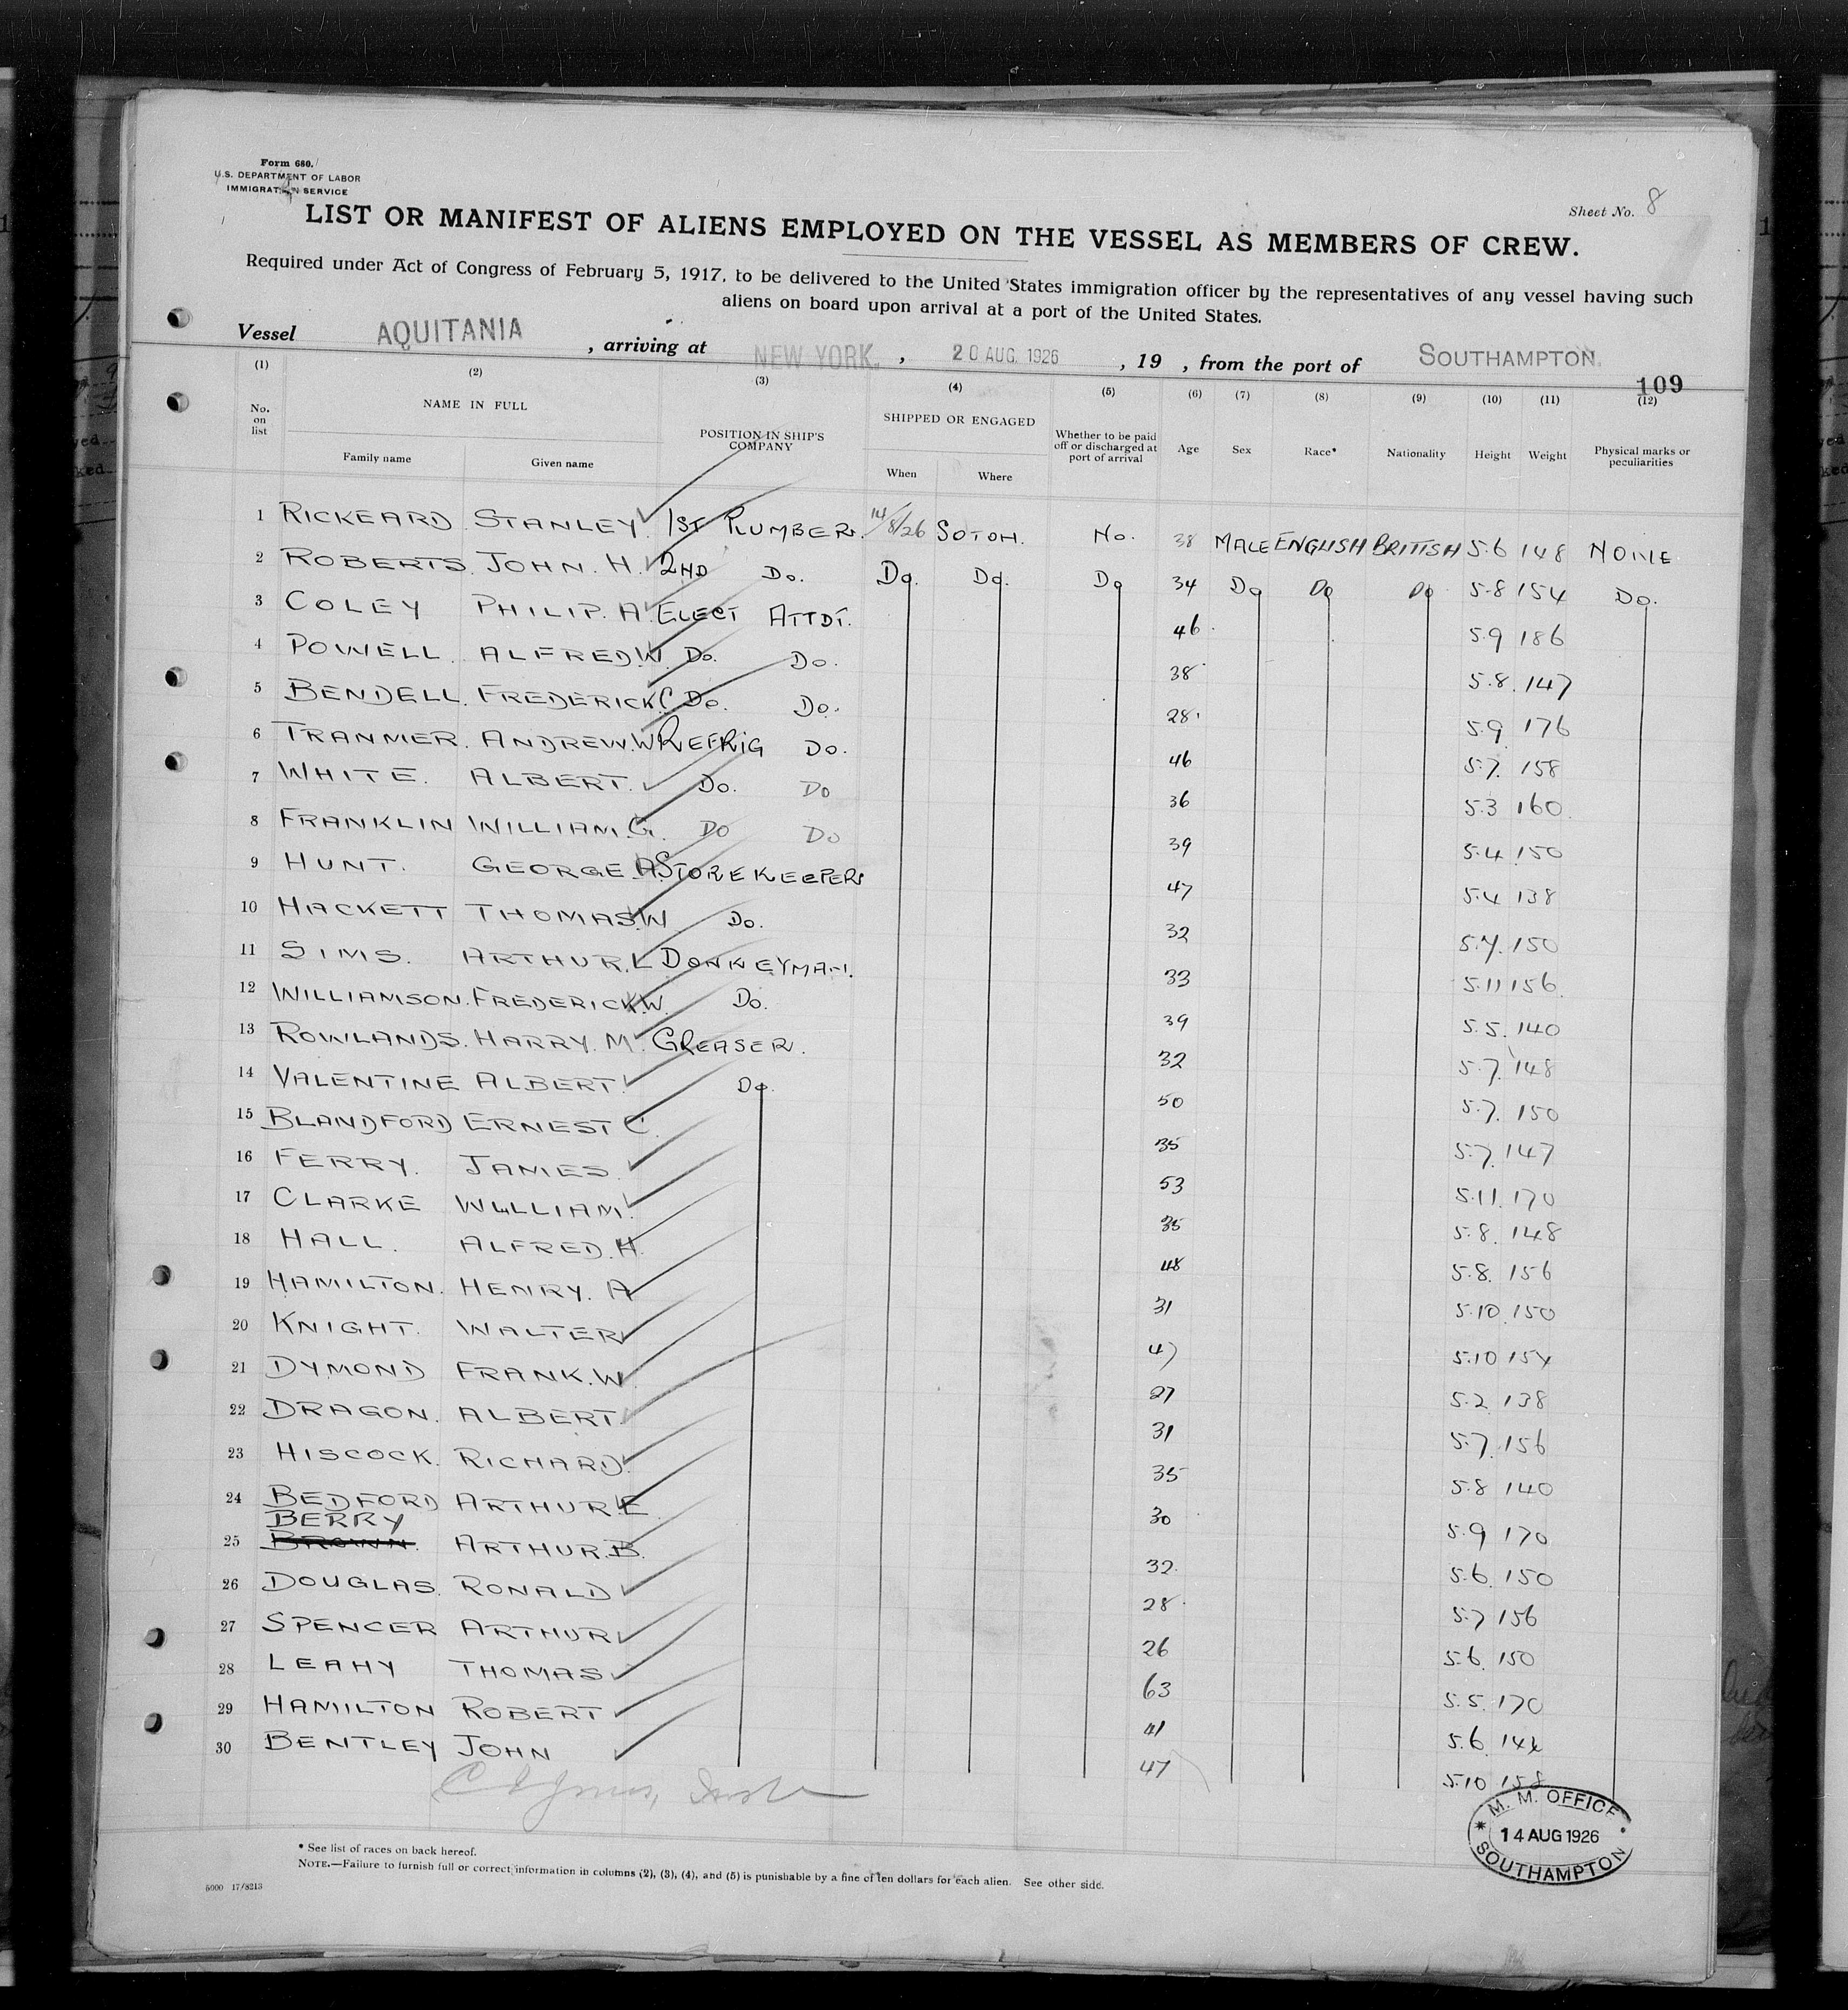 Form 680.
U.S. DEPARTMENT OF LABOR
IMMIGRATION SERVICE
Sheet No. 8
LIST OR MANIFEST OF ALIENS EMPLOYED ON THE VESSEL AS MEMBERS OF CREW.
Required under Act of Congress of February 5, 1917, to be delivered to the United States immigration officer by the representatives of any vessel having such
aliens on board upon arrival at a port of the United States.
Vessel AQUITANIA , arriving at NEW YORK. , 20 AUG. 1926 , 19 , from the port of SOUTHAMPTON.
109
(1) (2) (3) (4) (5) (6) (7) (8) (9) (10) (11) (12)
No. on list NAME IN FULL Family name Given name POSITION IN SHIP'S COMPANY SHIPPED OR ENGAGED When Where Whether to be paid off or discharged at port of arrival Age Sex Race* Nationality Height Weight Physical marks or peculiarities
1 RICKEARD STANLEY. 1ST PLUMBER. 14/8/26 SOTON. No. 38 MALE ENGLISH BRITISH 5.6 148 NONE
2 ROBERTS. JOHN. H. 2ND Do. Do. Do. Do 34 Do Do Do 5.8 154 Do.
3 COLEY PHILIP. A. ELECT ATTDT. 46 5.9 186
4 POWELL. ALFRED.W. Do. Do. 38 5.8. 147
5 BENDELL. FREDERICK.C Do. Do. 28 5.9 176
6 TRANMER. ANDREW.W REFRIG Do. 46 5.7. 158
7 WHITE. ALBERT. Do. Do 36 5.3 160.
8 FRANKLIN WILLIAM.G. Do Do 39 5.4 150
9 HUNT. GEORGE.A. STOREKEEPER 47 5.4 138
10 HACKETT THOMAS.W Do. 32 5.7. 150
11 SIMS. ARTHUR.L DONKEYMAN. 33 5.11 156.
12 WILLIAMSON. FREDERICK.W. Do. 39 5.5. 140
13 ROWLANDS. HARRY. M. GREASER. 32 5.7. 148
14 VALENTINE ALBERT. Do. 50 5.7. 150
15 BLANDFORD ERNEST C. 35 5.7. 147
16 FERRY. JAMES. 53 5.11. 170
17 CLARKE WILLIAM. 35 5.8. 148
18 HALL. ALFRED. H. 48 5.8. 156
19 HAMILTON. HENRY. A 31 5.10. 150
20 KNIGHT. WALTER 47 5.10 154
21 DYMOND FRANK.W. 27 5.2. 138
22 DRAGON. ALBERT. 31 5.7. 156
23 HISCOCK. RICHARD. 35 5.8 140
24 BEDFORD ARTHUR.E. 30 5.9 170
BERRY
25 BROWN. ARTHUR.B. 32. 5.6. 150
26 DOUGLAS. RONALD 28 5.7 156
27 SPENCER ARTHUR 26 5.6. 150
28 LEAHY THOMAS 63 5.5. 170
29 HAMILTON ROBERT 41 5.6. 144
30 BENTLEY JOHN 47 5.10 158
M. M. OFFICE
14 AUG 1926
SOUTHAMPTON
* See list of races on back hereof.
NOTE.—Failure to furnish full or correct information in columns (2), (3), (4), and (5) is punishable by a fine of ten dollars for each alien. See other side.
5000 17/8213